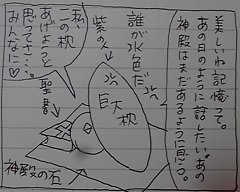 美しいね記憶って。
あの日のように話したい。あの
神殿はまだあるように思う。
誰が水色だ
紫の人
巨大
枕
私、
この枕
あげようと
思ってさ…。
みんなに♡
聖書
神殿の石